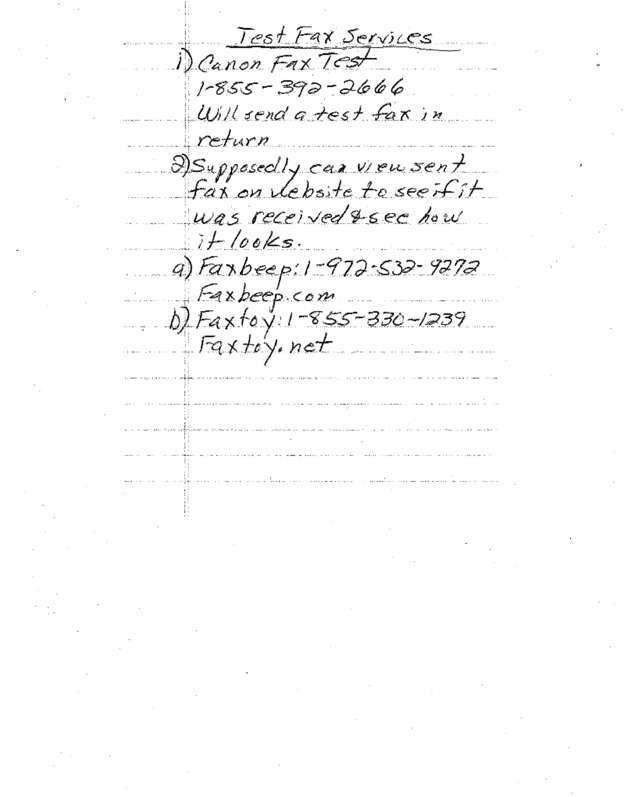 Test Fax Services
1) Canon Fax Test
1-855-392-2666
Will send a test fax in
return
2) Supposedly can view sent
fax on website to see if it
was received & see how
it looks.
a) Faxbeep: 1-972-532-9272
Faxbeep.com
b) Faxtoy: 1-855-330-1239
Faxtoy.net